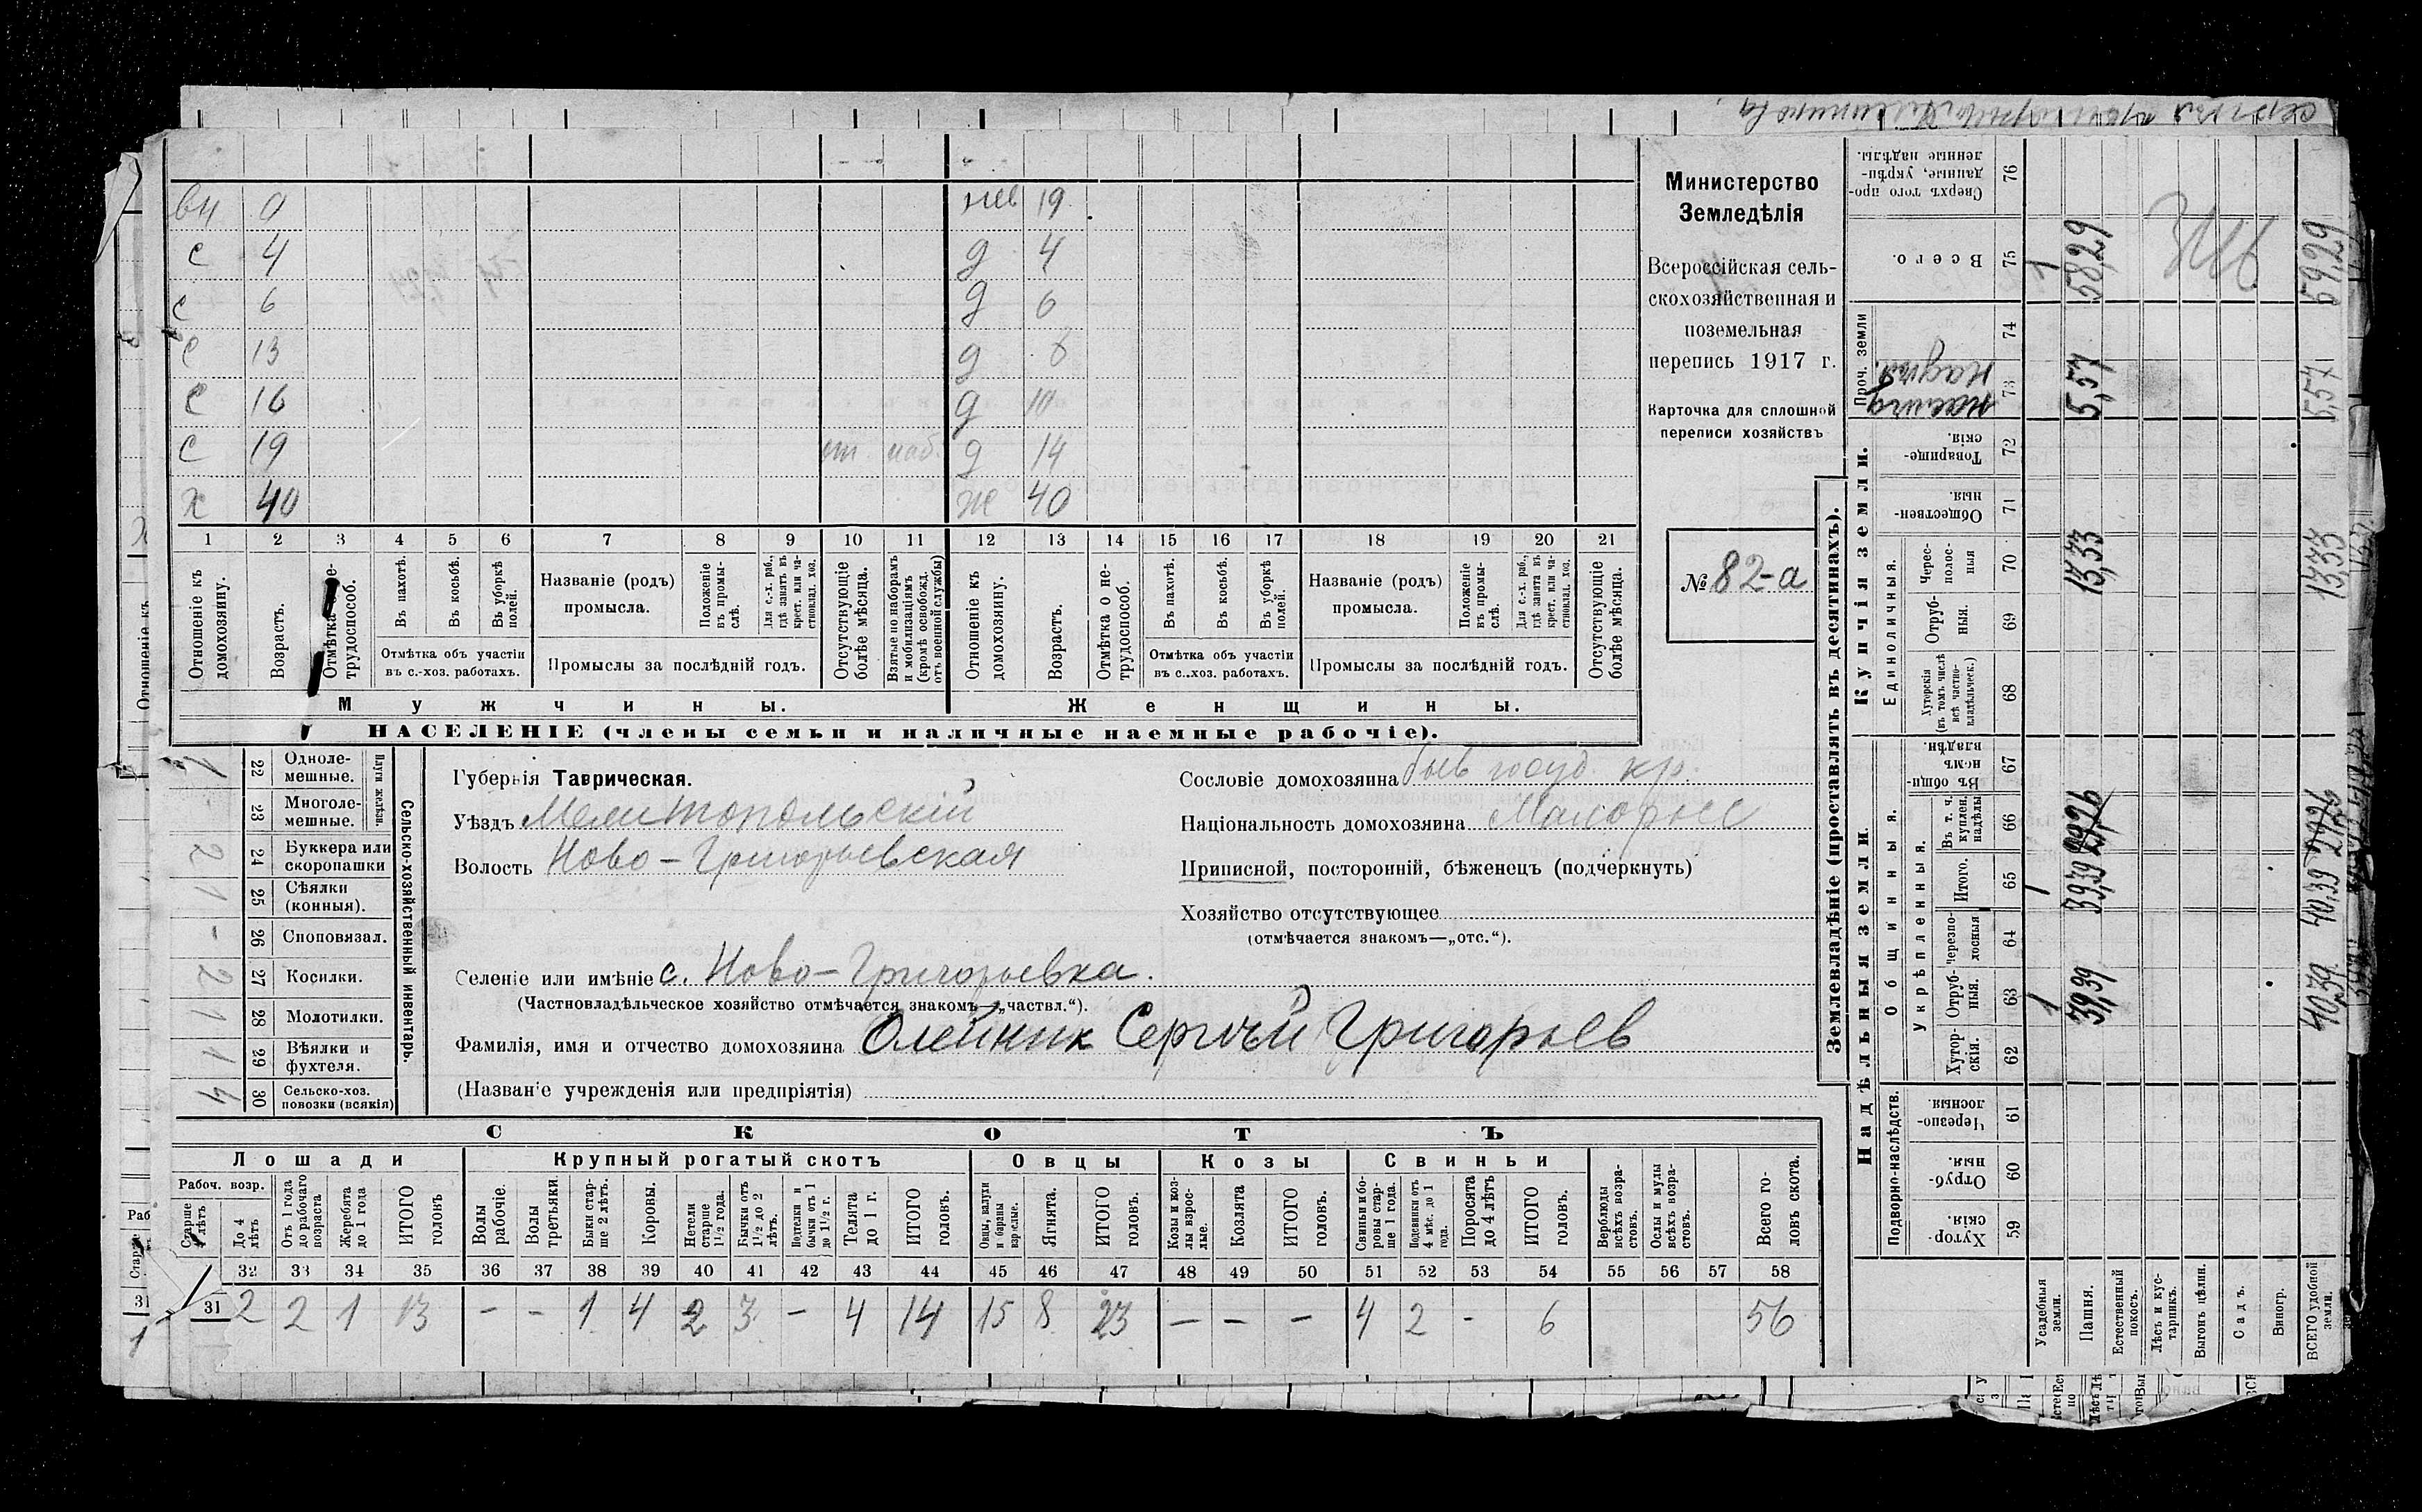 вн 0 нев 19
с 4 д 4
с 6 д 6
с 13 д 8
с 16 д 10
с 19 от. моб. д 14
х 40 ж 40
1 2 3 4 5 6 7 8 9 10 11 12 13 14 15 16 17 18 19 20 21
Отношеніе къ домохозяину.
Возрастъ.
трудоспособ.
Въ пахотѣ.
Въ косьбѣ.
Въ уборкѣ полей.
Отмѣтка объ участіи въ с.-хоз. работахъ.
Названіе (родъ) промысла.
Положеніе въ промыслѣ.
Для с.-х. раб., гдѣ занятъ въ крест. или частновлад. хоз.
Промыслы за послѣдній годъ.
Отсутствующіе болѣе мѣсяца.
Взятые по наборамъ и мобилизаціямъ (кромѣ освобожд. отъ военной службы)
Отношеніе къ домохозяину.
Возрастъ.
Отмѣтка о нетрудоспособ.
Въ пахотѣ.
Въ косьбѣ.
Въ уборкѣ полей.
Отмѣтка объ участіи въ с.-хоз. работахъ.
Названіе (родъ) промысла.
Положеніе въ промыслѣ.
Для с.-х. раб., гдѣ занята въ крест. или частновлад. хоз.
Промыслы за послѣдній годъ.
Отсутствующіе болѣе мѣсяца.
Мужчины. Женщины.
НАСЕЛЕНІЕ (члены семьи и наличные наемные рабочіе).
Министерство
Земледѣлія
Всероссійская сель-
скохозяйственная и
поземельная
перепись 1917 г.
Карточка для сплошной
переписи хозяйствъ
№ 82-а
Сельско-хозяйственный инвентарь.
Плуги желѣзн.
22 Одноле-мешные. 1
23 Многоле-мешные. -
24 Буккера или скоропашки 2
25 Сѣялки (конныя). 1
26 Сноповязал. -
27 Косилки. 2
28 Молотилки. 1
29 Вѣялки и фухтеля. 1
30 Сельско-хоз. повозки (всякія) 4
Губернія Таврическая.
Уѣздъ Мелитопольскій
Волость Ново-Григорьевская
Сословіе домохозяина быв госуд. кр.
Національность домохозяина Малоросс
Приписной, посторонній, бѣженецъ (подчеркнуть)
Хозяйство отсутствующее
(отмѣчается знакомъ—„отс.“).
Селеніе или имѣніе с. Ново-Григорьевка.
(Частновладѣльческое хозяйство отмѣчается знакомъ—„частвл.“).
Фамилія, имя и отчество домохозяина Олейник Сергѣй Григорьев
(Названіе учрежденія или предпріятія)
СКОТЪ
Лошади Крупный рогатый скотъ Овцы Козы Свиньи
Рабоч. возр.
Старше 4 лѣтъ
До 4 лѣтъ
Отъ 1 года до рабочаго возраста
Жеребята до 1 года
ИТОГО головъ
Волы рабочіе.
Волы третьяки.
Быки старше 2 лѣтъ.
Коровы.
Нетели старше 1½ года.
Бычки отъ 1½ до 2 лѣтъ.
бычки отъ 1 до 1½ г.
Телята до 1 г.
ИТОГО головъ.
Овцы, валухи и бараны взрослые.
Ягнята.
ИТОГО головъ.
Козы и козлы взрослые.
Козлята
ИТОГО головъ.
Свиньи и боровы старше 1 года.
Подсвинки отъ 4 мѣс. до 1 года.
Поросята до 4 лѣтъ
ИТОГО головъ.
Верблюды всѣхъ возрастовъ.
Ослы и мулы всѣхъ возрастовъ.
Всего головъ скота.
31 32 33 34 35 36 37 38 39 40 41 42 43 44 45 46 47 48 49 50 51 52 53 54 55 56 57 58
2 2 1 13 - - 1 4 2 3 - 4 14 15 8 23 - - - 4 2 - 6 56
Землевладѣніе (проставлять въ десятинахъ).
Купчія земли.
Надѣльныя земли.
Сверхъ того проданные, укрѣпленные надѣлы. 76
Всего. 75
Проч. земли 74
73
Товарищескія. 72
Общественныя. 71
Единоличныя.
Черес-полос-ныя 70
Отруб-ныя. 69
Хуторскія (въ томъ числѣ всѣ частновладѣльческ.) 68
Общинныя.
Въ общи-номъ владѣн. 67
Укрѣпленныя.
Въ т. ч. куплен. надѣлы 66
Итого. 65
Черезпо-лосныя 64
Отруб-ныя. 63
Хутор-скія. 62
Подворно-наслѣдств.
Черезпо-лосныя 61
Отруб-ныя. 60
Хутор-скія. 59
Усадебныя земли. 1 1 1
Пашня. 39,39 39,39 29,26 13,33 5,57 58,29
Естественный покосъ.
Лѣсъ и кустарникъ.
Выгонъ цѣлин.
Садъ.
Виногр.
ВСЕГО удобной земли. 40,39 40,39 29,26 13,33 5,57 59,29